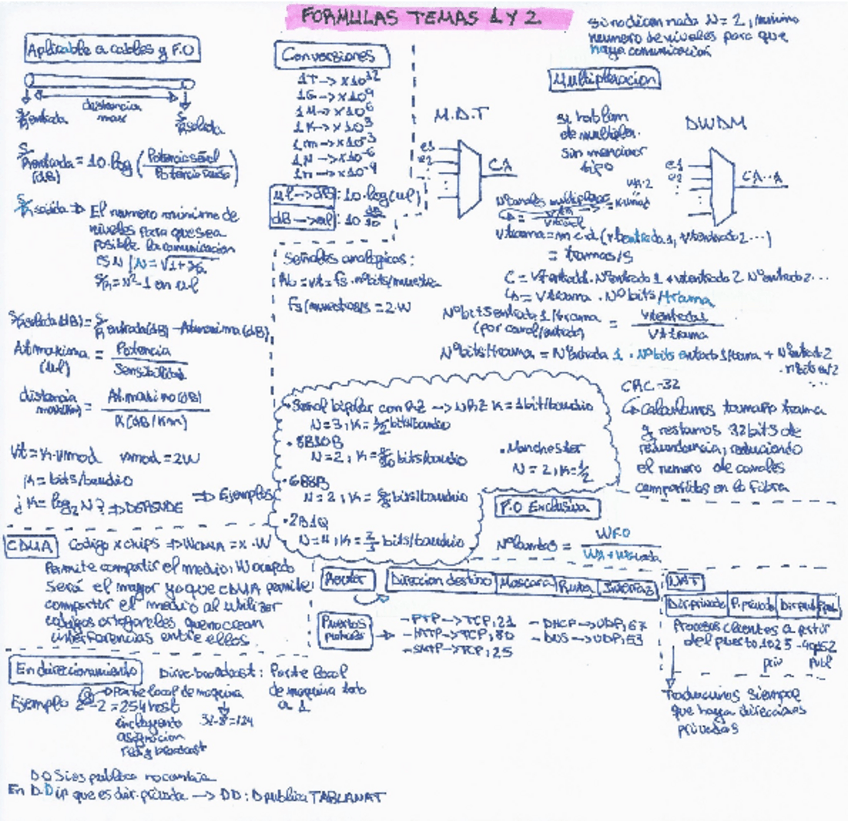 FORMULAS TEMAS 1 Y 2
si no dicen nada N = 2, minimo
numero de niveles para que
haya comunicación
Aplicable a cables y F.O
distancia
max
S/R entrada
S/R salida
S/R entrada = 10·log (Potencia señal / Potencia ruido)
(dB)
S/R salida => El numero minimo de
niveles para que sea
posible la comunicacion
es N / N = √1+S/R
S/R = N²-1 en ul
S/R salida (dB) = S/R entrada (dB) - At maxima (dB)
At maxima = Potencia / Sensibilidad
(ul)
distancia = At. maxima (dB) / α (dB/Km)
Vt = K·Vmod Vmod = 2W
K = bits/baudio
¿K = log₂ N? => DEPENDE => Ejemplos
Conversiones
1T -> x10¹²
1G -> x10⁹
1M -> x10⁶
1K -> x10³
1m -> x10⁻³
x10⁻⁶
1n -> x10⁻⁹
ul -> dB : 10·log(ul)
dB -> ul : 10
Señales analogicas :
= Vt = fs · nº bits/muestra
fs (muestras/s) = 2·W
Multiplexacion
M.D.T
e1
e2
si hablan
de multiplex
sin mencionar
tipo
DWDM
e1
e2
Nº canales multiplexados
Vtrama = m.c.d (Vt entrada 1, Vt entrada 2 ...)
= tramas/s
C = Vt entrada 1 · Nº entrada 1 + Vt entrada 2 Nº entrada 2 ...
Vtrama · Nº bits / trama
Nº bits entrada 1 / trama = Vt entrada 1 / Vt trama
(por canal/entrada)
Nº bits/trama = Nº entrada 1 · Nº bits entrada 1/trama + Nº entrada 2
· nº bits en 2
...
CRC-32
Calculamos tamaño trama
y restamos 32 bits de
redundancia, reduciendo
el numero de canales
compartidos en la fibra
·Señal bipolar con RZ -> NRZ K = 1 bit/baudio
N = 3, K = 1/2 bits/baudio
·8B10B
N = 2, K = 8/10 bits/baudio
·Manchester
N = 2, K = 1/2
·6B8B
N = 2, K = 6/8 bits/baudio
·2B1Q
N = 4, K = bits/baudio
F.O Exclusiva
CDMA Codigo x chips => W CDMA = x · W
Permite compartir el medio; W ocupado
Será el mayor ya que CDMA permite
compartir el medio al utilizar
códigos ortogonales que no crean
interferencias entre ellos
Router
Direccion destino | Mascara | Ruta | Interfaz
NAT
Dir privada | P. privado | Dir publ
Puertos
-FTP -> TCP, 21
-HTTP -> TCP, 80
-SMTP -> TCP, 25
-DHCP -> UDP, 67
-DNS -> UDP, 53
Procesos clientes a partir
del puerto 1023
priv publ
Traducimos siempre
que haya direcciones
privadas
Endireccionamiento
Direc. broadcast : Parte local
de maquina todo
a 1
Parte local de maquina
Ejemplo 2⁸-2 = 254 host
incluyendo
asignacion
red y broadcast
DO Si es publica no cambia
En D.D ip que es dir. privada -> DD : D publica TABLA NAT